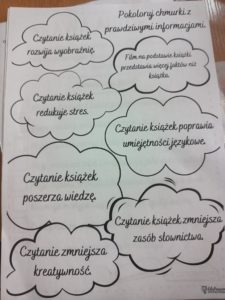 Pokoloruj chmurki z
prawdziwymi informacjami.
Czytanie książek
rozwija wyobraźnię.
Film na podstawie książki
przedstawia więcej faktów niż
książka.
Czytanie książek
redukuje stres.
Czytanie książek poprawia
umiejętności językowe.
Czytanie książek
poszerza wiedzę.
Czytanie książek zmniejsza
zasób słownictwa.
Czytanie zmniejsza
kreatywność.